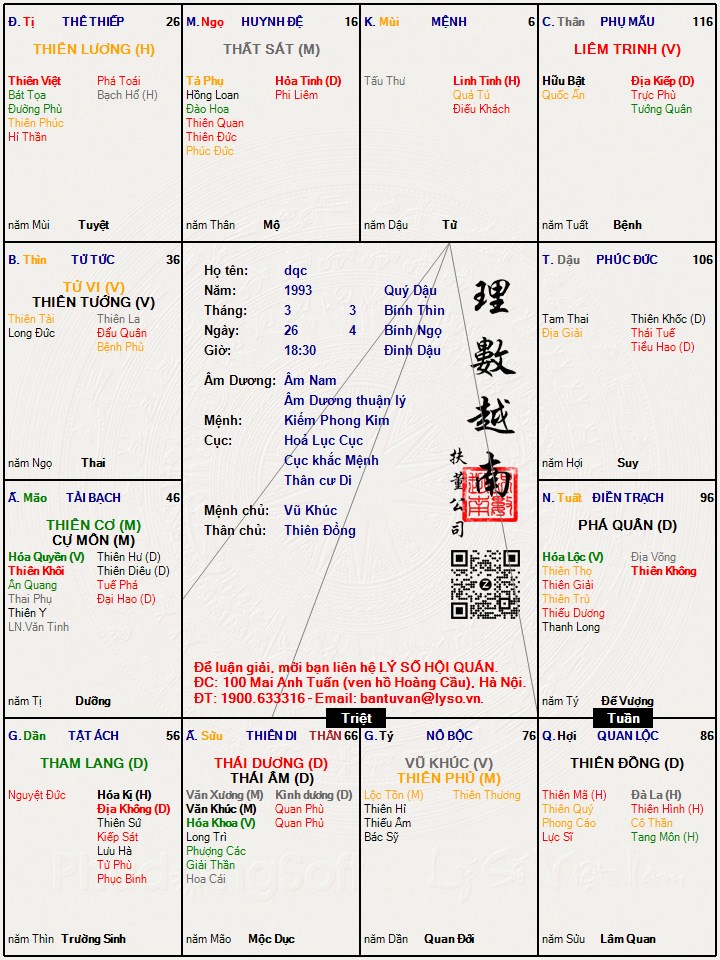 Đ. Tị THÊ THIẾP 26
THIÊN LƯƠNG (H)
Thiên Việt Phá Toái
Bát Tọa Bạch Hổ (H)
Đường Phù
Thiên Phúc
Hỉ Thần
năm Mùi Tuyệt
M. Ngọ HUYNH ĐỆ 16
THẤT SÁT (M)
Tả Phụ Hỏa Tinh (D)
Hồng Loan Phi Liêm
Đào Hoa
Thiên Quan
Thiên Đức
Phúc Đức
năm Thân Mộ
K. Mùi MỆNH 6
Tấu Thư Linh Tinh (H)
Quả Tú
Điếu Khách
năm Dậu Tử
C. Thân PHỤ MẪU 116
LIÊM TRINH (V)
Hữu Bật Địa Kiếp (D)
Quốc Ấn Trực Phù
Tướng Quân
năm Tuất Bệnh
B. Thìn TỬ TỨC 36
TỬ VI (V)
THIÊN TƯỚNG (V)
Thiên Tài Thiên La
Long Đức Đẩu Quân
Bệnh Phù
năm Ngọ Thai
Họ tên: dqc
Năm: 1993 Quý Dậu
Tháng: 3 3 Bính Thìn
Ngày: 26 4 Bính Ngọ
Giờ: 18:30 Đinh Dậu
Âm Dương: Âm Nam
Âm Dương thuận lý
Mệnh: Kiếm Phong Kim
Cục: Hoả Lục Cục
Cục khắc Mệnh
Thân cư Di
Mệnh chủ: Vũ Khúc
Thân chủ: Thiên Đồng
理數越南
扶董公司
Để luận giải, mời bạn liên hệ LÝ SỐ HỘI QUÁN.
ĐC: 100 Mai Anh Tuấn (ven hồ Hoàng Cầu), Hà Nội.
ĐT: 1900.633316 - Email: bantuvan@lyso.vn.
T. Dậu PHÚC ĐỨC 106
Tam Thai Thiên Khốc (D)
Địa Giải Thái Tuế
Tiểu Hao (D)
năm Hợi Suy
Ấ. Mão TÀI BẠCH 46
THIÊN CƠ (M)
CỰ MÔN (M)
Hóa Quyền (V) Thiên Hư (D)
Thiên Khôi Thiên Diêu (D)
Ân Quang Tuế Phá
Thai Phụ Đại Hao (D)
Thiên Y
LN.Văn Tinh
năm Tị Dưỡng
N. Tuất ĐIỀN TRẠCH 96
PHÁ QUÂN (D)
Hóa Lộc (V) Địa Võng
Thiên Thọ Thiên Không
Thiên Giải
Thiên Trù
Thiếu Dương
Thanh Long
năm Tý Đế Vượng
Triệt
Tuần
G. Dần TẬT ÁCH 56
THAM LANG (D)
Nguyệt Đức Hóa Kị (H)
Địa Không (D)
Thiên Sứ
Kiếp Sát
Lưu Hà
Tử Phù
Phục Binh
năm Thìn Trường Sinh
Ấ. Sửu THIÊN DI THÂN 66
THÁI DƯƠNG (D)
THÁI ÂM (D)
Văn Xương (M) Kình dương (D)
Văn Khúc (M) Quan Phù
Hóa Khoa (V) Quan Phủ
Long Trì
Phượng Các
Giải Thần
Hoa Cái
năm Mão Mộc Dục
G. Tý NÔ BỘC 76
VŨ KHÚC (V)
THIÊN PHỦ (M)
Lộc Tồn (M) Thiên Thương
Thiên Hỉ
Thiếu Âm
Bác Sỹ
năm Dần Quan Đới
Q. Hợi QUAN LỘC 86
THIÊN ĐỒNG (D)
Thiên Mã (H) Đà La (H)
Thiên Quý Thiên Hình (H)
Phong Cáo Cô Thần
Lực Sĩ Tang Môn (H)
năm Sửu Lâm Quan